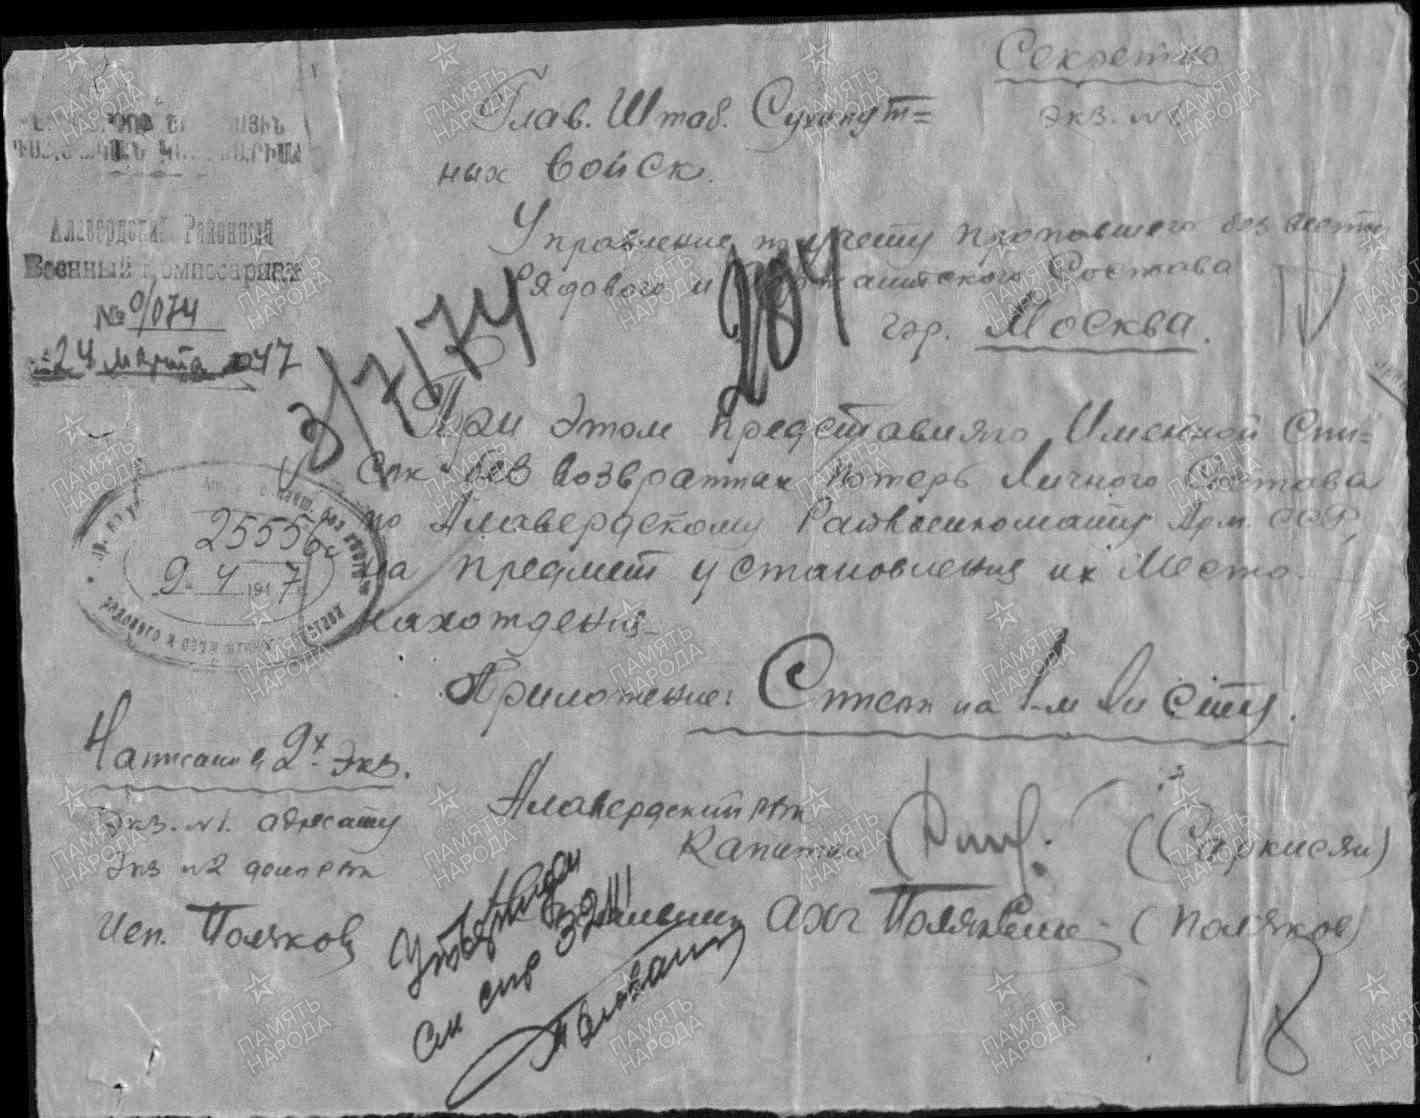 Секретно
экз. №1
Глав. Штаб. Сухопут=
ных Войск.
Управление по учету пропавшего без вести
Рядового и Сержантского Состава
гор. Москва.
Алавердский Районный
Военный Комиссариат
№ 0/074
"24" марта 1947
3/7/74
204
При этом представляю Именной Спи=
сок без возвратных потерь Личного Состава
по Алавердскому Райвоенкомату Арм. ССР,
на предмет установления их Место
нахождения.
25556с
9 4 1947 г.
рядового и сержантского состава
Приложение: Список на 1-м листу.
Написано в 2х экз.
Экз. №1. адресату
Экз №2 дело рвк
Исп. Поляков
Алавердский рвк
Капитан (Саркисян)
АХЧ (Поляков)
см стр
18